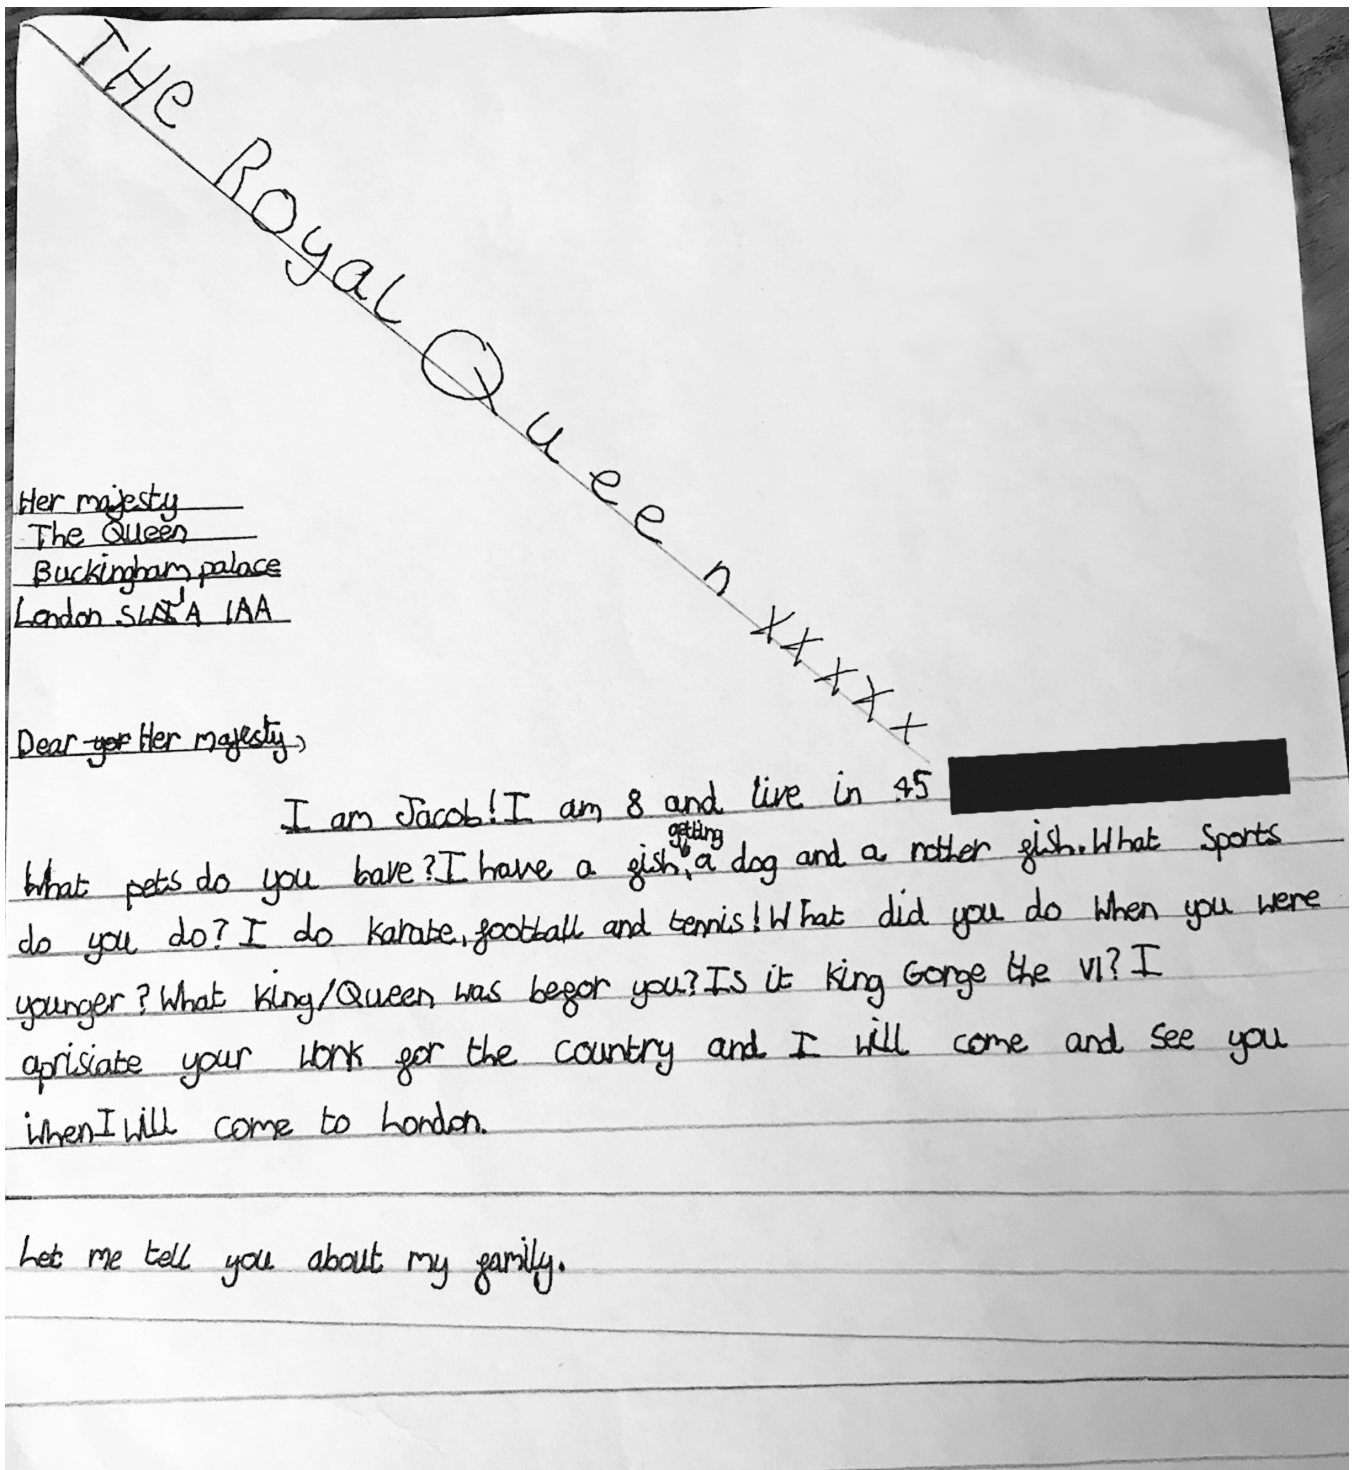 THe Royal Queen xxxxx
Her majesty
The Queen
Buckingham palace
London SW1A 1AA
Dear Her majesty,
I am Jacob! I am 8 and live in 45
What pets do you have? I have a fish, getting a dog and a nother fish. What Sports
do you do? I do karate, football and tennis! What did you do when you were
younger? What King/Queen was befor you? Is it King Gorge the VI? I
aprisiate your work for the country and I will come and see you
when I will come to London.
Let me tell you about my family.